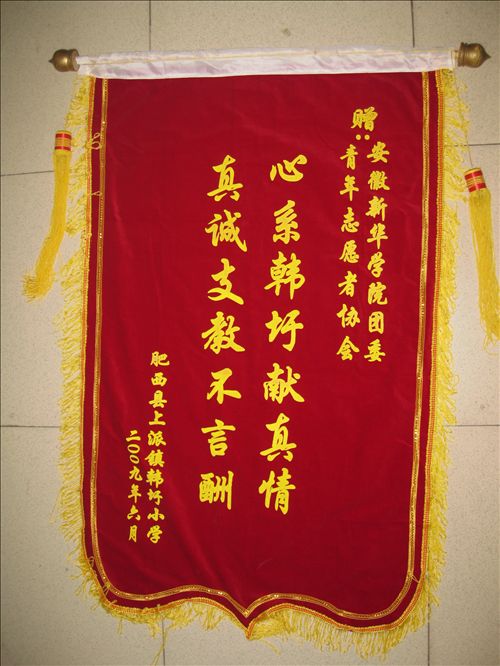 赠:安徽新华学院团委
青年志愿者协会
心系韩圩献真情
真诚支教不言酬
肥西县上派镇韩圩小学
二00九年六月